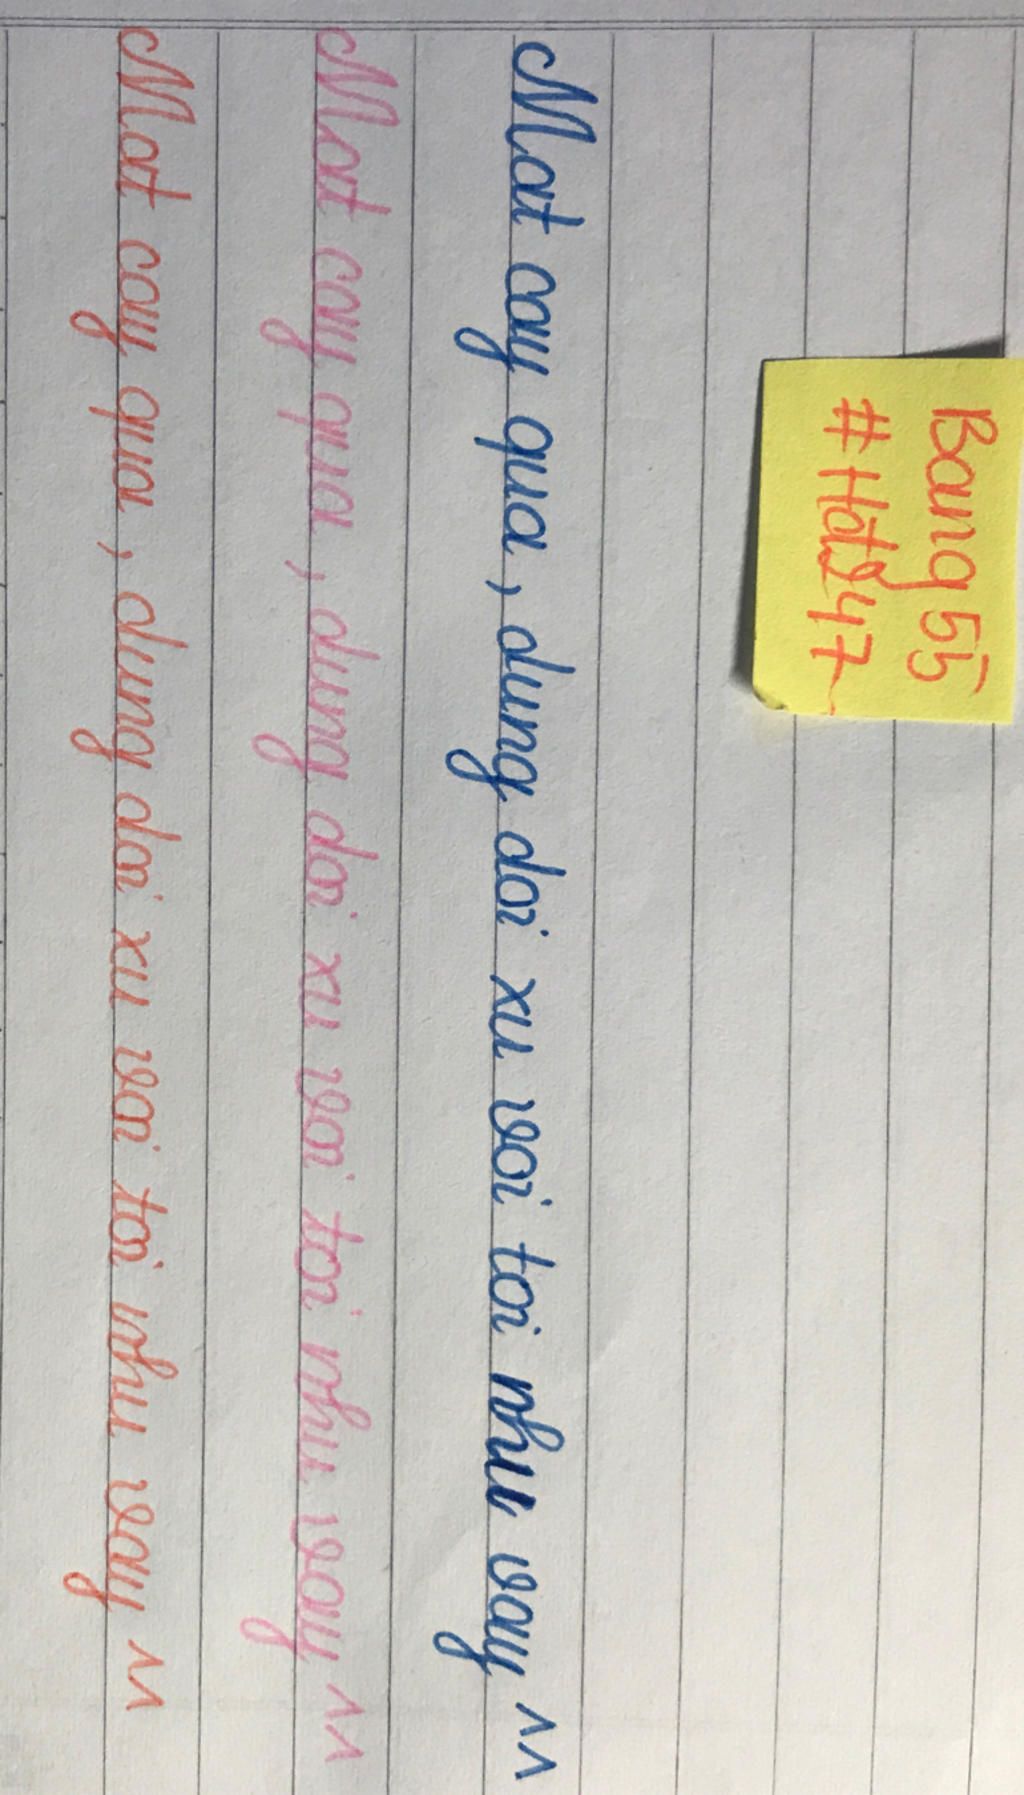 Bang55
#Hot247
Mat cay qua , dung doi xu voi toi nhu vay ^^
Mat cay qua , dung doi xu voi toi nhu vay ^^
Mat cay qua , dung doi xu voi toi nhu vay ^^